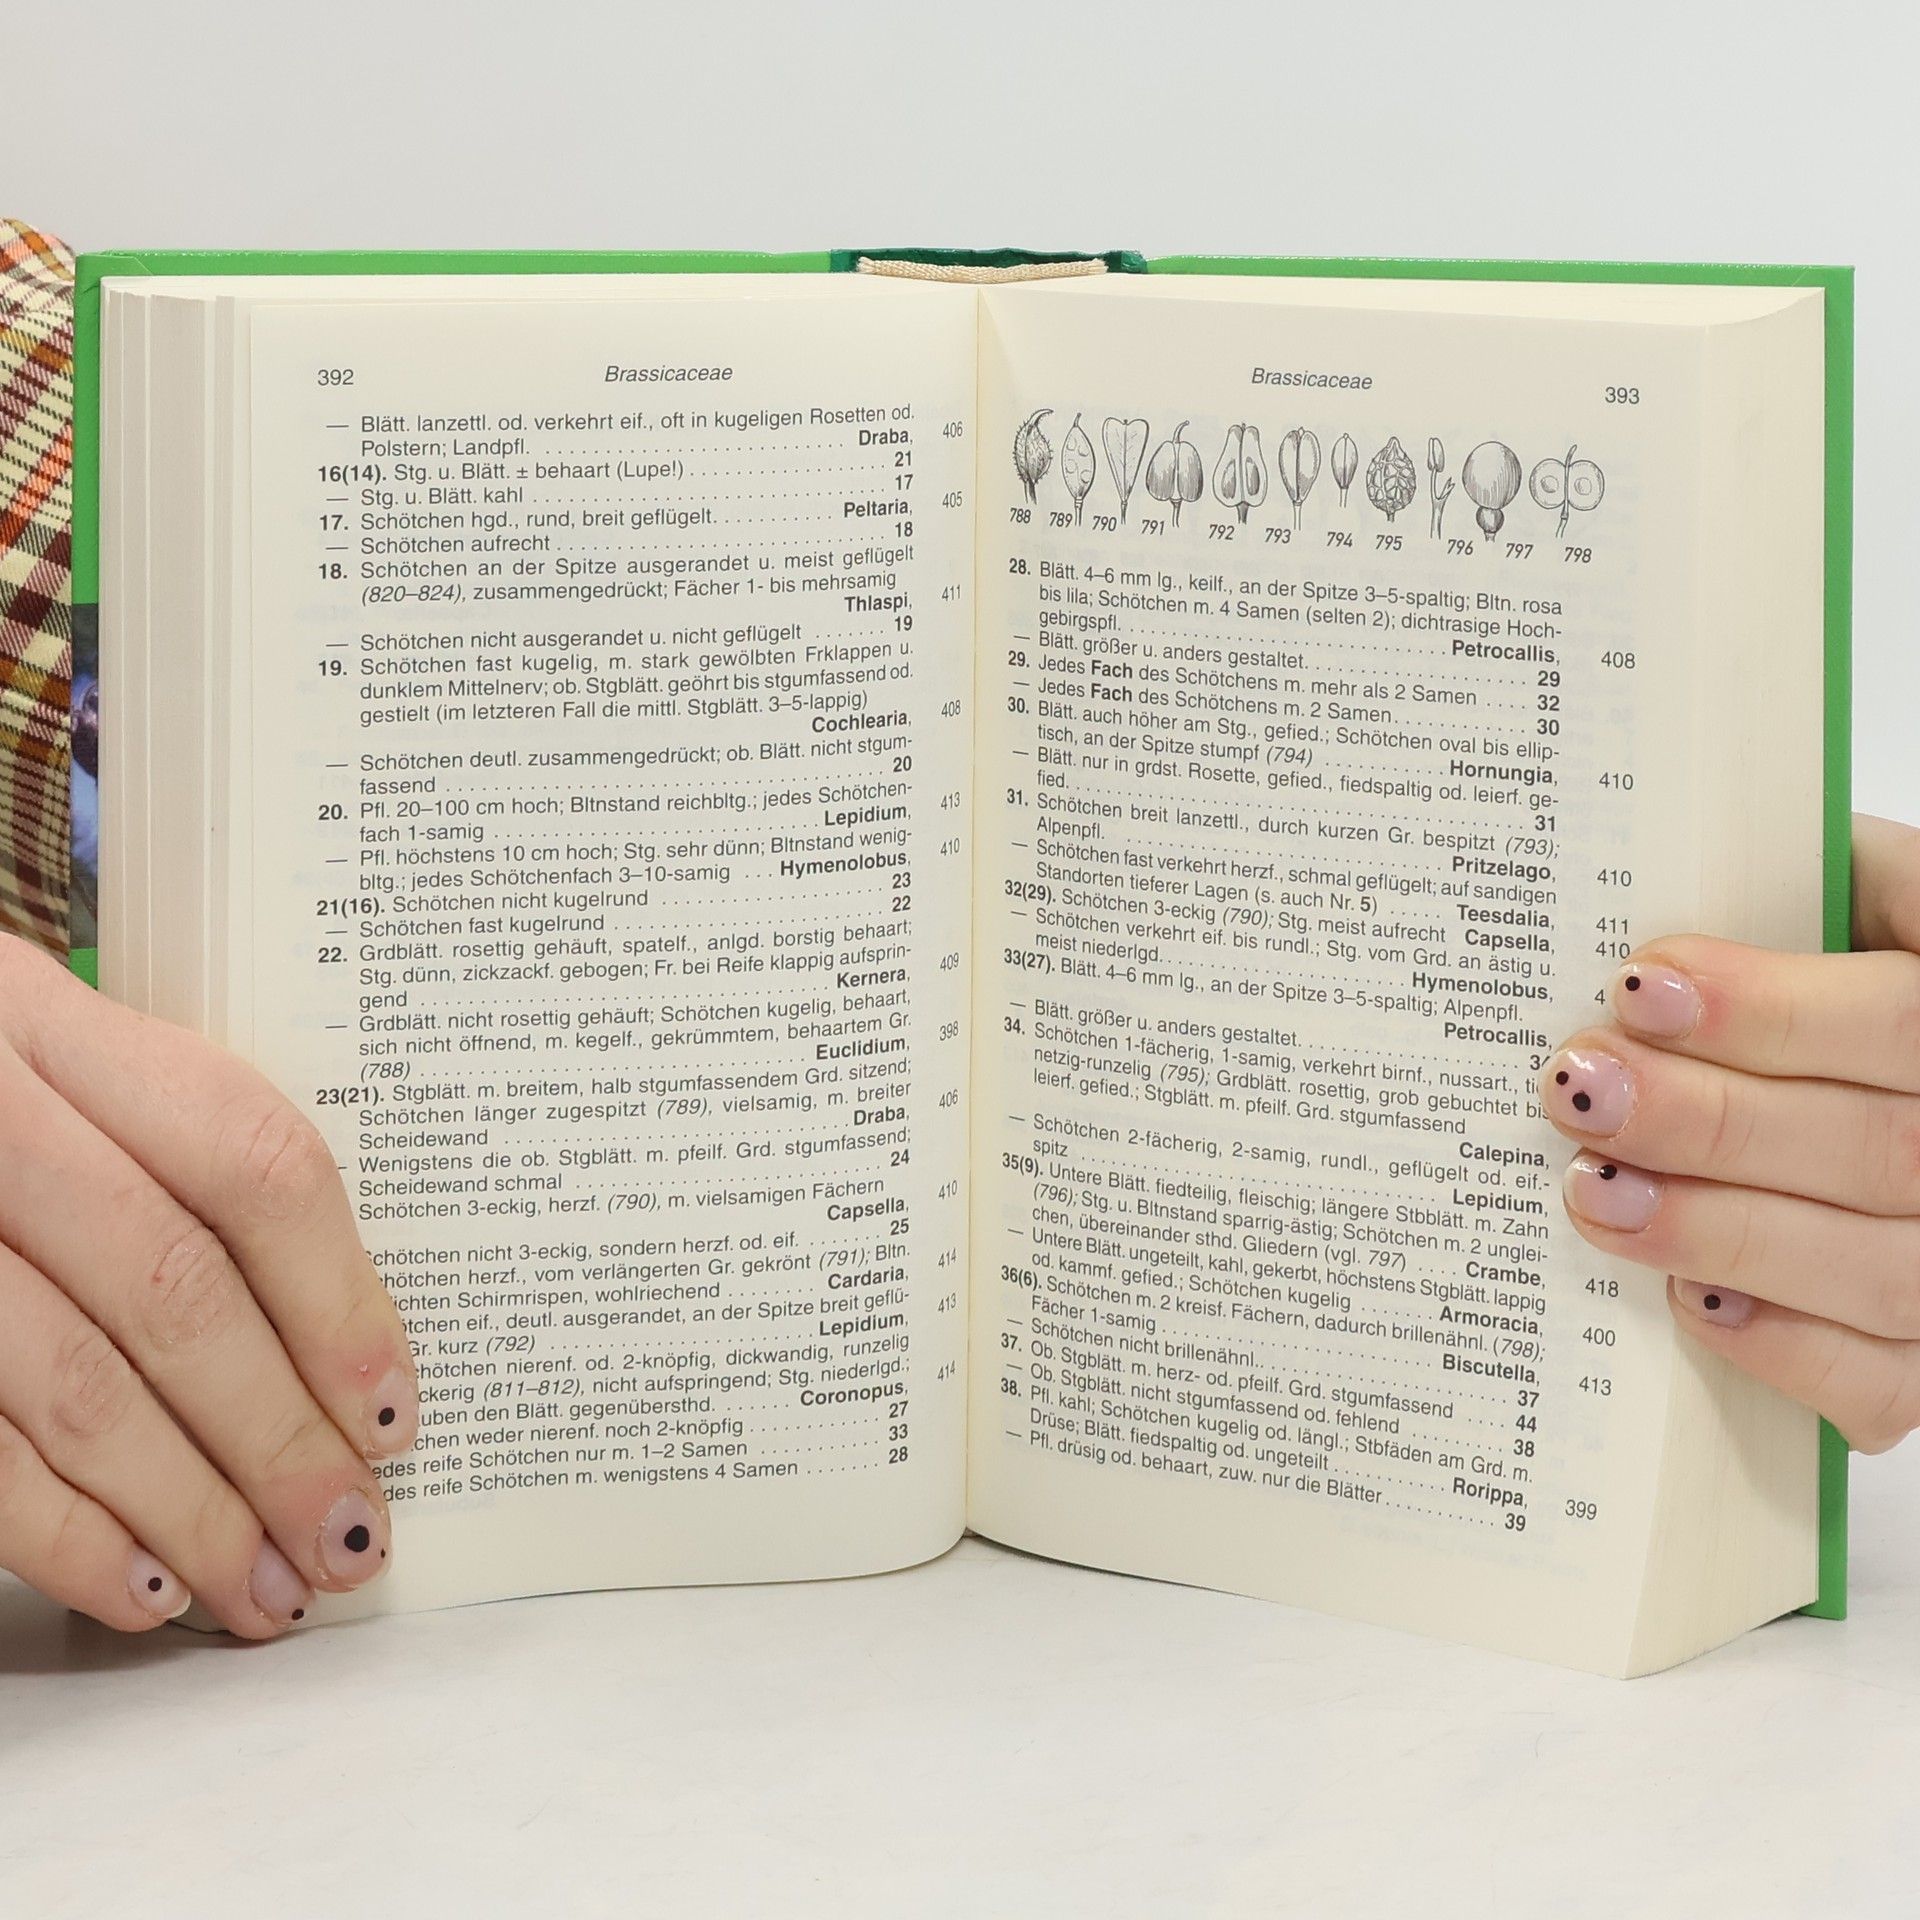 392 Brassicaceae
— Blätt. lanzettl. od. verkehrt eif., oft in kugeligen Rosetten od.
Polstern; Landpfl. . . . . . . . . . . . . . . . . . . . . . . . . . Draba, 406
16(14). Stg. u. Blätt. ± behaart (Lupe!) . . . . . . . . . . . . . . . . . 21
— Stg. u. Blätt. kahl . . . . . . . . . . . . . . . . . . . . . . . . . . . . . . 17
17. Schötchen hgd., rund, breit geflügelt. . . . . . . . . . . Peltaria, 405
— Schötchen aufrecht . . . . . . . . . . . . . . . . . . . . . . . . . . . . 18
18. Schötchen an der Spitze ausgerandet u. meist geflügelt
(820–824), zusammengedrückt; Fächer 1- bis mehrsamig
Thlaspi, 411
— Schötchen nicht ausgerandet u. nicht geflügelt . . . . . . . 19
19. Schötchen fast kugelig, m. stark gewölbten Frklappen u.
dunklem Mittelnerv; ob. Stgblätt. geöhrt bis stgumfassend od.
gestielt (im letzteren Fall die mittl. Stgblätt. 3–5-lappig)
Cochlearia, 408
— Schötchen deutl. zusammengedrückt; ob. Blätt. nicht stgum-
fassend . . . . . . . . . . . . . . . . . . . . . . . . . . . . . . . . . . . . . . 20
20. Pfl. 20–100 cm hoch; Bltnstand reichbltg.; jedes Schötchen-
fach 1-samig . . . . . . . . . . . . . . . . . . . . . . . . . . . . Lepidium, 413
— Pfl. höchstens 10 cm hoch; Stg. sehr dünn; Bltnstand wenig-
bltg.; jedes Schötchenfach 3–10-samig . . . Hymenolobus, 410
21(16). Schötchen nicht kugelrund . . . . . . . . . . . . . . . . . . . . 23
— Schötchen fast kugelrund . . . . . . . . . . . . . . . . . . . . . . . . 22
22. Grdblätt. rosettig gehäuft, spatelf., anlgd. borstig behaart;
Stg. dünn, zickzackf. gebogen; Fr. bei Reife klappig aufsprin-
gend . . . . . . . . . . . . . . . . . . . . . . . . . . . . . . . . . . . Kernera, 409
— Grdblätt. nicht rosettig gehäuft; Schötchen kugelig, behaart,
sich nicht öffnend, m. kegelf., gekrümmtem, behaartem Gr.
(788) . . . . . . . . . . . . . . . . . . . . . . . . . . . . . . . . . Euclidium, 398
23(21). Stgblätt. m. breitem, halb stgumfassendem Grd. sitzend;
Schötchen länger zugespitzt (789), vielsamig, m. breiter
Scheidewand . . . . . . . . . . . . . . . . . . . . . . . . . . . . . Draba, 406
– Wenigstens die ob. Stgblätt. m. pfeilf. Grd. stgumfassend;
Scheidewand schmal . . . . . . . . . . . . . . . . . . . . . . . . . . 24
Schötchen 3-eckig, herzf. (790), m. vielsamigen Fächern
Capsella, 410
chötchen nicht 3-eckig, sondern herzf. od. eif. . . . . . . . . 25
hötchen herzf., vom verlängerten Gr. gekrönt (791); Bltn.
ichten Schirmrispen, wohlriechend . . . . . . . . Cardaria, 414
tchen eif., deutl. ausgerandet, an der Spitze breit geflü-
Gr. kurz (792) . . . . . . . . . . . . . . . . . . . . . . . . Lepidium, 413
hötchen nierenf. od. 2-knöpfig, dickwandig, runzelig
ckerig (811–812), nicht aufspringend; Stg. niederlgd.;
uben den Blätt. gegenübersthd. . . . . . . . Coronopus, 414
chen weder nierenf. noch 2-knöpfig . . . . . . . . . . . . . . 27
edes reife Schötchen nur m. 1–2 Samen . . . . . . . . . . . . 33
des reife Schötchen m. wenigstens 4 Samen . . . . . . . 28
Brassicaceae 393
788 789 790 791 792 793 794 795 796 797 798
28. Blätt. 4–6 mm lg., keilf., an der Spitze 3–5-spaltig; Bltn. rosa
bis lila; Schötchen m. 4 Samen (selten 2); dichtrasige Hoch-
gebirgspfl. . . . . . . . . . . . . . . . . . . . . . . . . . . . Petrocallis, 408
— Blätt. größer u. anders gestaltet. . . . . . . . . . . . . . . . . . . 29
29. Jedes Fach des Schötchens m. mehr als 2 Samen . . . . 32
— Jedes Fach des Schötchens m. 2 Samen. . . . . . . . . . . . 30
30. Blätt. auch höher am Stg., gefied.; Schötchen oval bis ellip-
tisch, an der Spitze stumpf (794) . . . . . . . . . . . Hornungia, 410
— Blätt. nur in grdst. Rosette, gefied., fiedspaltig od. leierf. ge-
fied. . . . . . . . . . . . . . . . . . . . . . . . . . . . . . . . . . . . . . . . 31
31. Schötchen breit lanzettl., durch kurzen Gr. bespitzt (793);
Alpenpfl. . . . . . . . . . . . . . . . . . . . . . . . . . . . . Pritzelago, 410
— Schötchen fast verkehrt herzf., schmal geflügelt; auf sandigen
Standorten tieferer Lagen (s. auch Nr. 5) . . . . . Teesdalia, 411
32(29). Schötchen 3-eckig (790); Stg. meist aufrecht Capsella, 410
— Schötchen verkehrt eif. bis rundl.; Stg. vom Grd. an ästig u.
meist niederlgd. . . . . . . . . . . . . . . . . . . . . . . Hymenolobus, 4
33(27). Blätt. 4–6 mm lg., an der Spitze 3–5-spaltig; Alpenpfl.
Petrocallis,
— Blätt. größer u. anders gestaltet. . . . . . . . . . . . . . . . . . . 34
34. Schötchen 1-fächerig, 1-samig, verkehrt birnf., nussart., ti
netzig-runzelig (795); Grdblätt. rosettig, grob gebuchtet bis
leierf. gefied.; Stgblätt. m. pfeilf. Grd. stgumfassend
Calepina,
— Schötchen 2-fächerig, 2-samig, rundl., geflügelt od. eif.-
spitz . . . . . . . . . . . . . . . . . . . . . . . . . . . . . . . . . Lepidium,
35(9). Untere Blätt. fiedteilig, fleischig; längere Stbblätt. m. Zahn
(796); Stg. u. Bltnstand sparrig-ästig; Schötchen m. 2 unglei-
chen, übereinander sthd. Gliedern (vgl. 797) . . . . Crambe, 418
— Untere Blätt. ungeteilt, kahl, gekerbt, höchstens Stgblätt. lappig
od. kammf. gefied.; Schötchen kugelig . . . . . . . Armoracia, 400
36(6). Schötchen m. 2 kreisf. Fächern, dadurch brillenähnl. (798);
Fächer 1-samig . . . . . . . . . . . . . . . . . . . . . . . . Biscutella, 413
— Schötchen nicht brillenähnl.. . . . . . . . . . . . . . . . . . . . . . 37
37. Ob. Stgblätt. m. herz- od. pfeilf. Grd. stgumfassend . . . . 44
— Ob. Stgblätt. nicht stgumfassend od. fehlend . . . . . . . . . 38
38. Pfl. kahl; Schötchen kugelig od. längl.; Stbfäden am Grd. m.
Drüse; Blätt. fiedspaltig od. ungeteilt . . . . . . . . . . . Rorippa, 399
— Pfl. drüsig od. behaart, zuw. nur die Blätter . . . . . . . . . . . 39